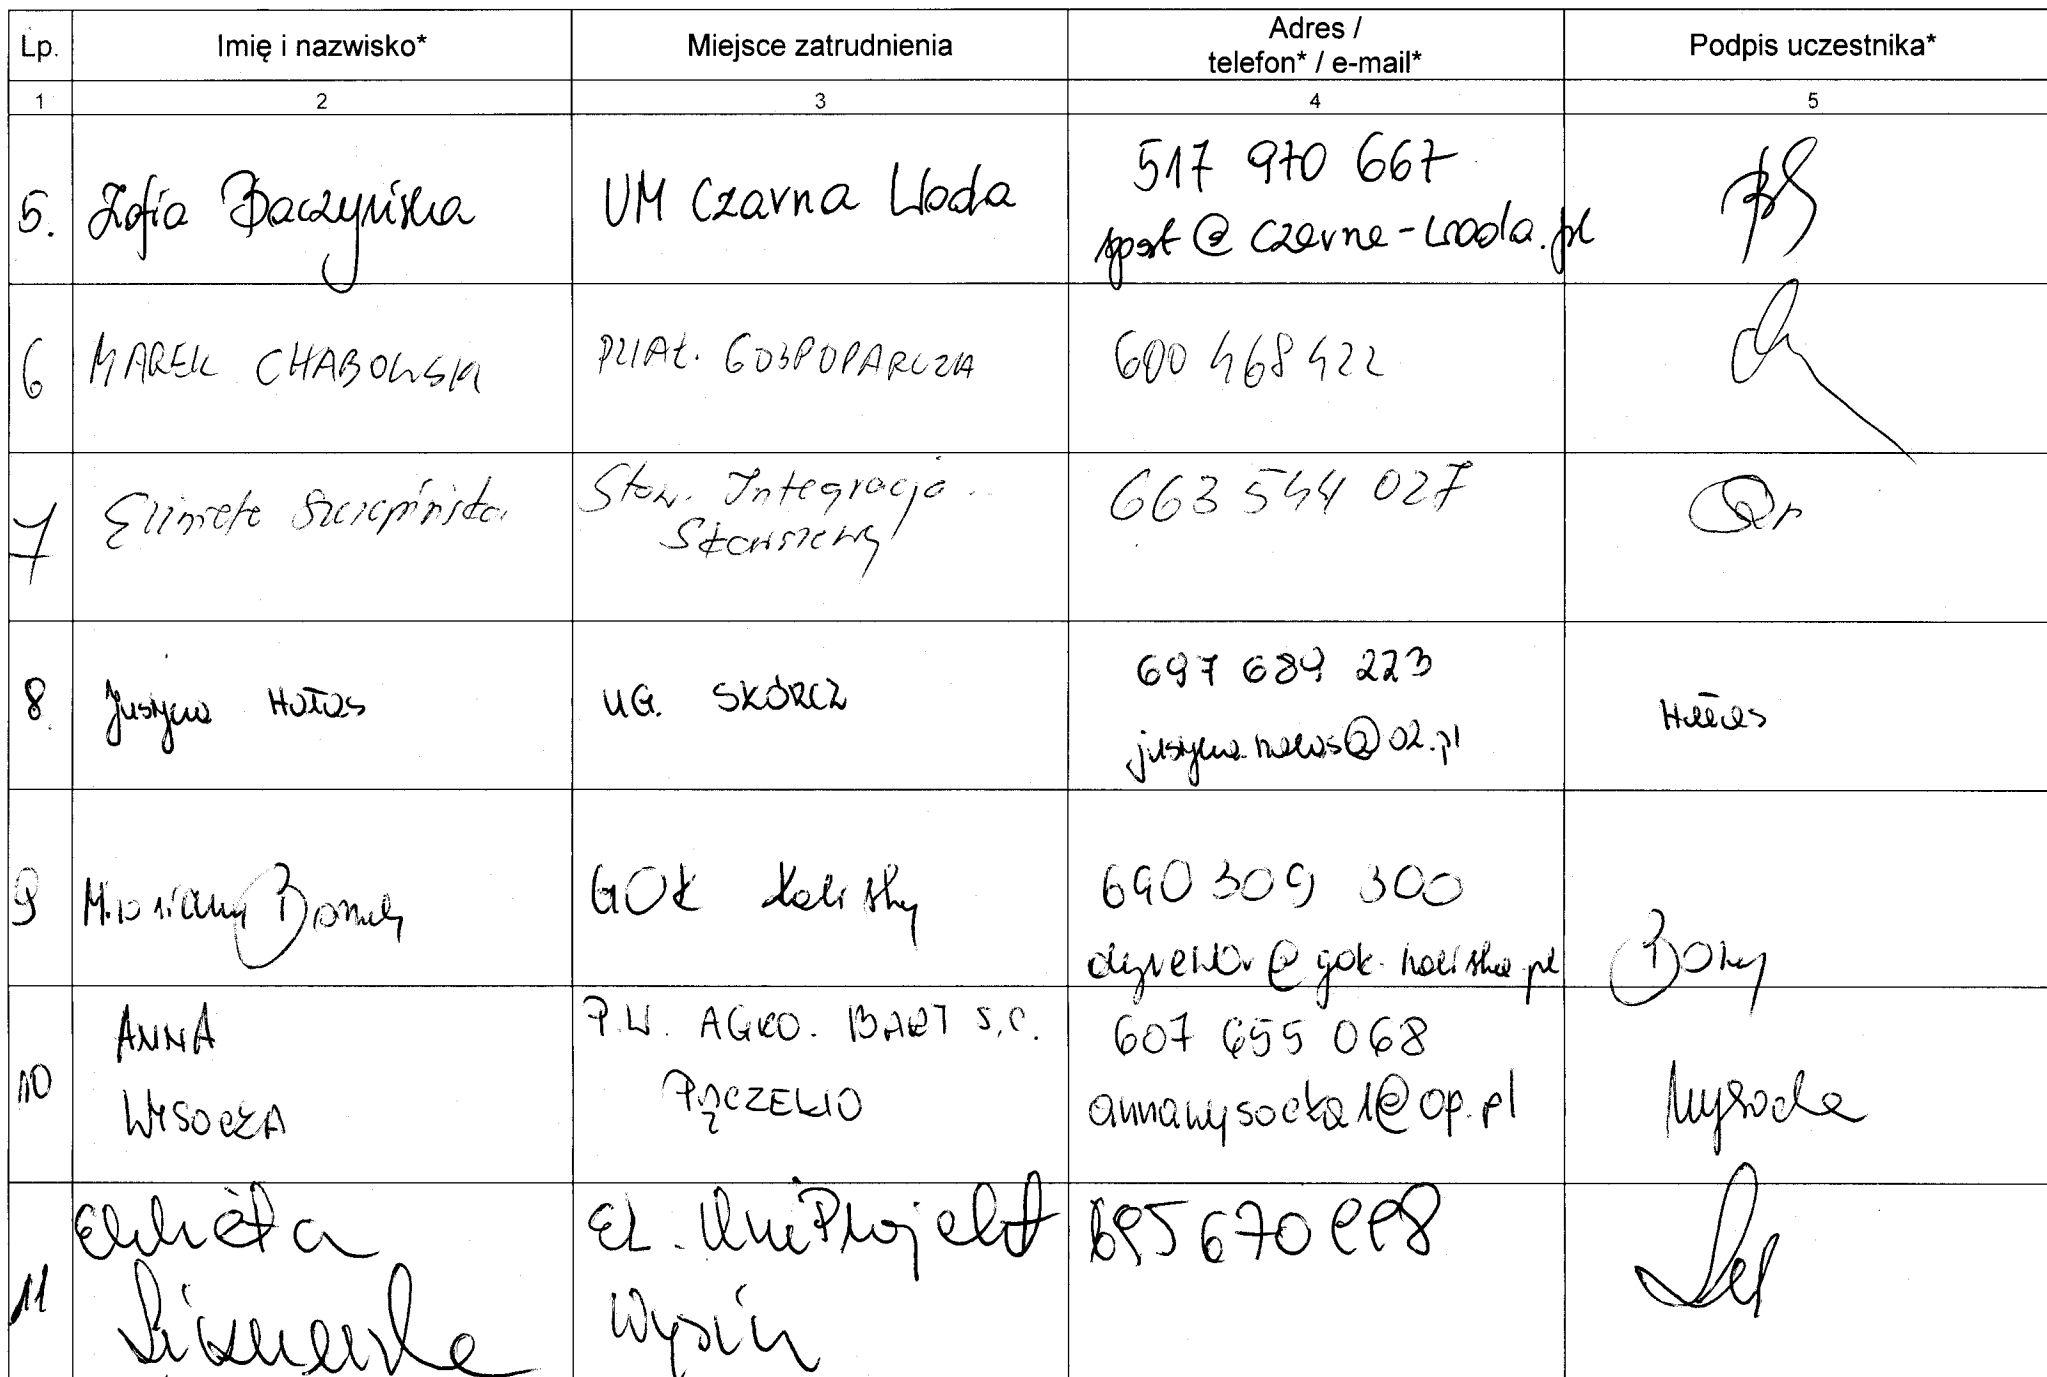 Lp. Imię i nazwisko* Miejsce zatrudnienia Adres / telefon* / e-mail* Podpis uczestnika*
1 2 3 4 5
5. Zofia Baczyńska UM Czarna Woda 517 970 667
sport@czarna-woda.pl
6 MAREK CHABOWSKI DZIAŁ. GOSPODARCZA 600 468 422
7 Elżbieta Szczepińska Stow. Integracja 663 544 027
8 Justyna Hałas UG. SKÓRCZ 697 689 223 Hałas
justyna.halas@o2.pl
9 GOK Kaliska 690 309 300
dyrektor@gok.kaliska.pl
10 ANNA P.W. AGRO. BART S.C. 607 655 068
WYSOCKA PĄCZEWO annawysocka1@op.pl Wysocka
11 Elżbieta EL. UniProjekt 695 670 998
Wysin